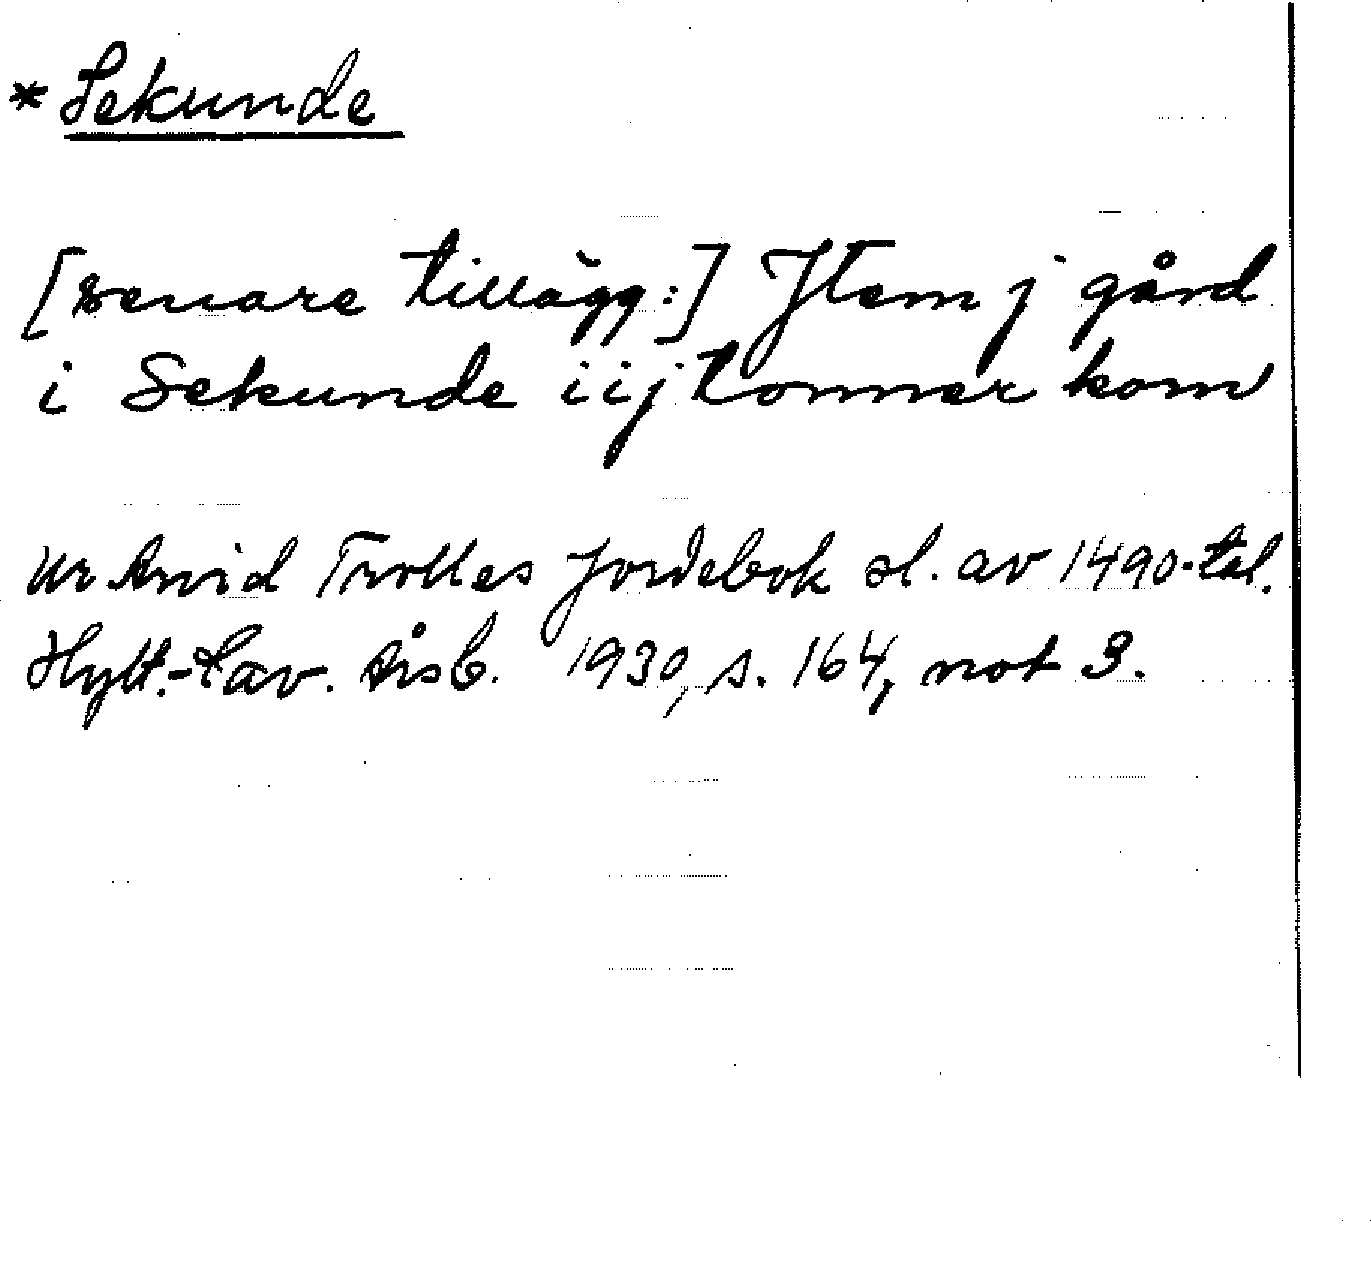 * Sekunde
[senare tillägg:] Jtem j gård
i Sekunde iij tonner korn
ur Arvid Trolles Jordebok sl. av 1490-tal.
Hylt.-Cav. Årsb. 1930, s. 164, not 3.